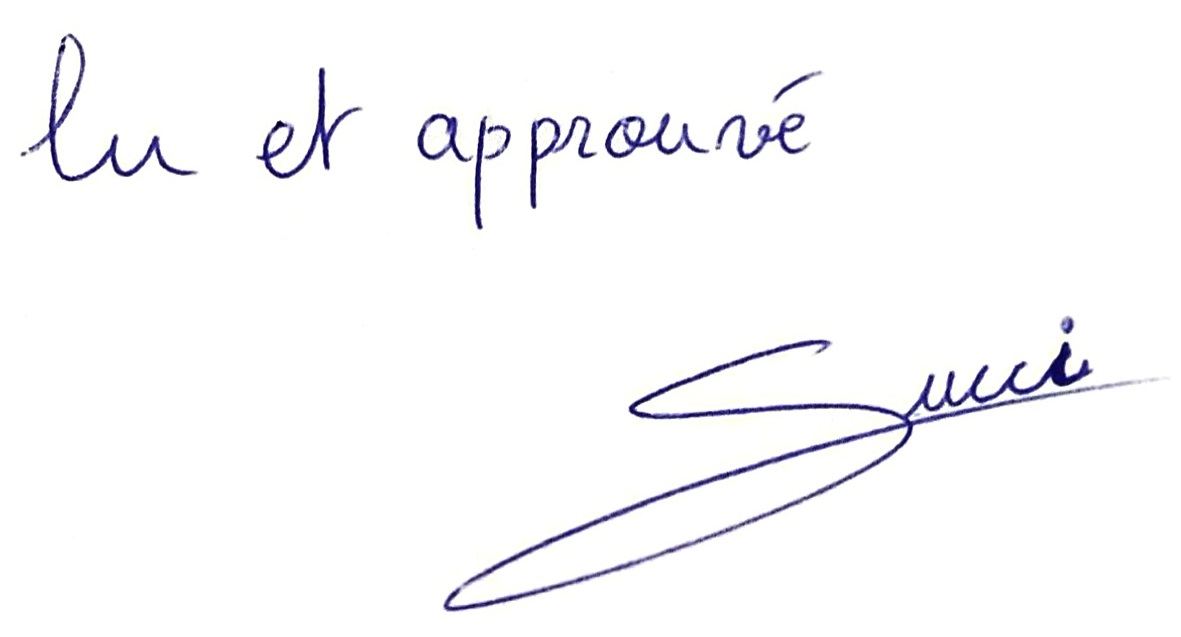 lu et approuvé
Succi